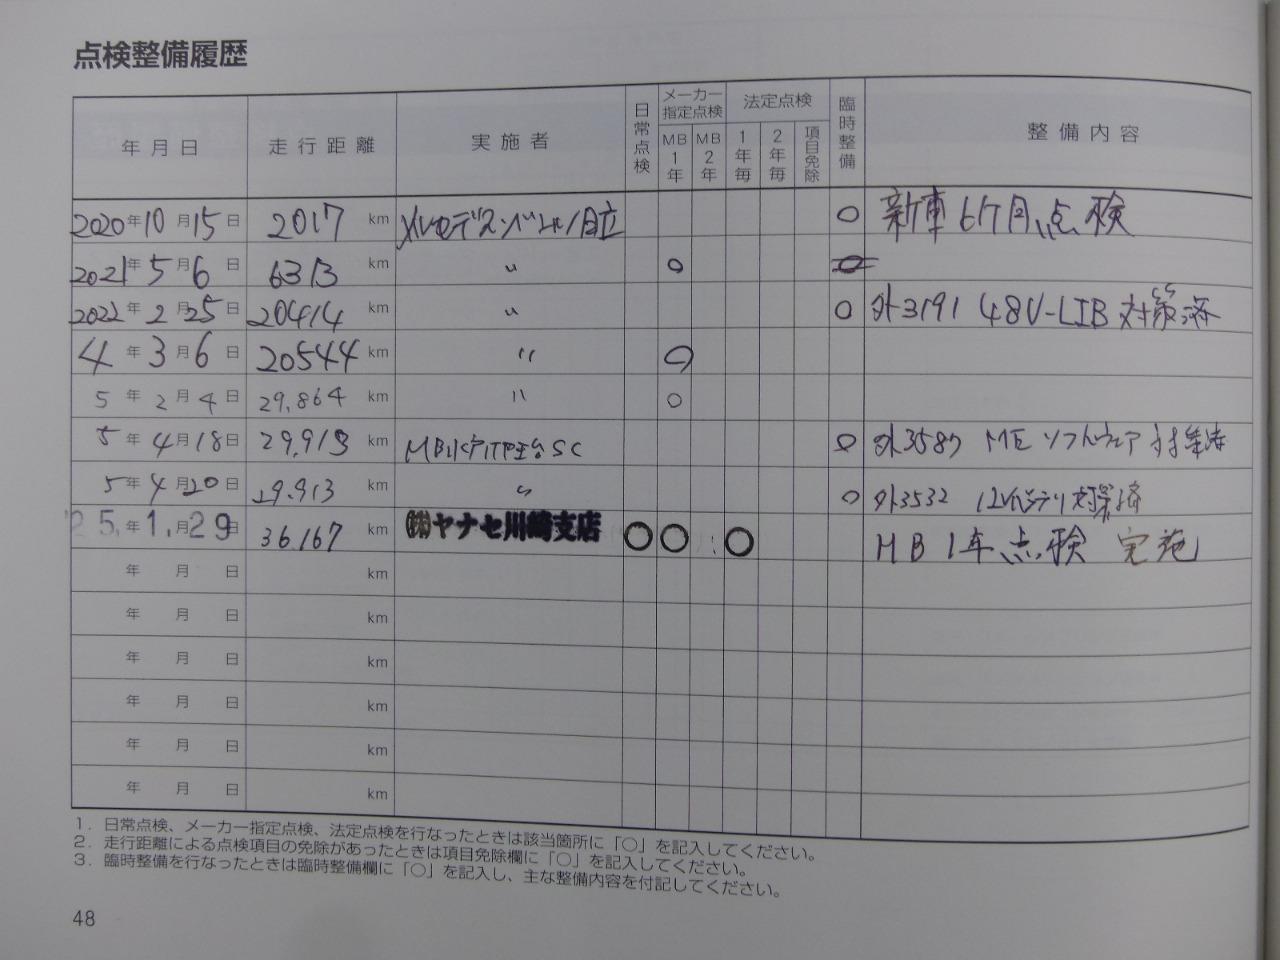 点検整備履歴
年月日 走行距離 実施者 日常点検 メーカー指定点検 MB1年 MB2年 法定点検 1年毎 2年毎 項目免除 臨時整備 整備内容
2020年10月15日 2017 km メルセデスベンツ日立 ○ 新車6ケ月点検
2021年5月6日 6313 km 〃 ○
2022年2月25日 20414 〃 ○ 外3191 48V-LIB 対策済
4年3月6日 20544 km 〃 ○
5年2月4日 29,864 km 〃 ○
5年4月18日 29,913 km SC ○ 外3587 ME ソフトウェア対策済
5年4月20日 29,913 km 〃 ○ 外3532 12Vバッテリ対策済
'25.年1.月29日 36.167 km ㈱ヤナセ川崎支店 ○ ○ ○ MB1年点検 実施
年 月 日 km
年 月 日 km
年 月 日 km
年 月 日 km
年 月 日 km
年 月 日 km
1. 日常点検、メーカー指定点検、法定点検を行なったときは該当箇所に「○」を記入してください。
2. 走行距離による点検項目の免除があったときは項目免除欄に「○」を記入してください。
3. 臨時整備を行なったときは臨時整備欄に「○」を記入し、主な整備内容を付記してください。
48